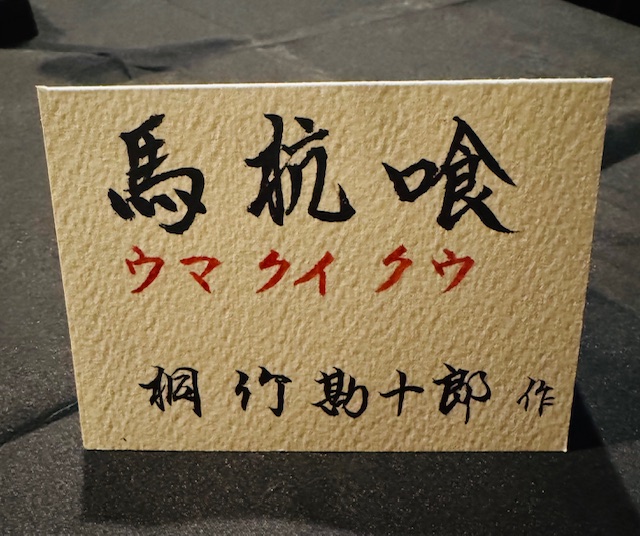 馬杭喰
ウマクイクウ
桐竹勘十郎 作